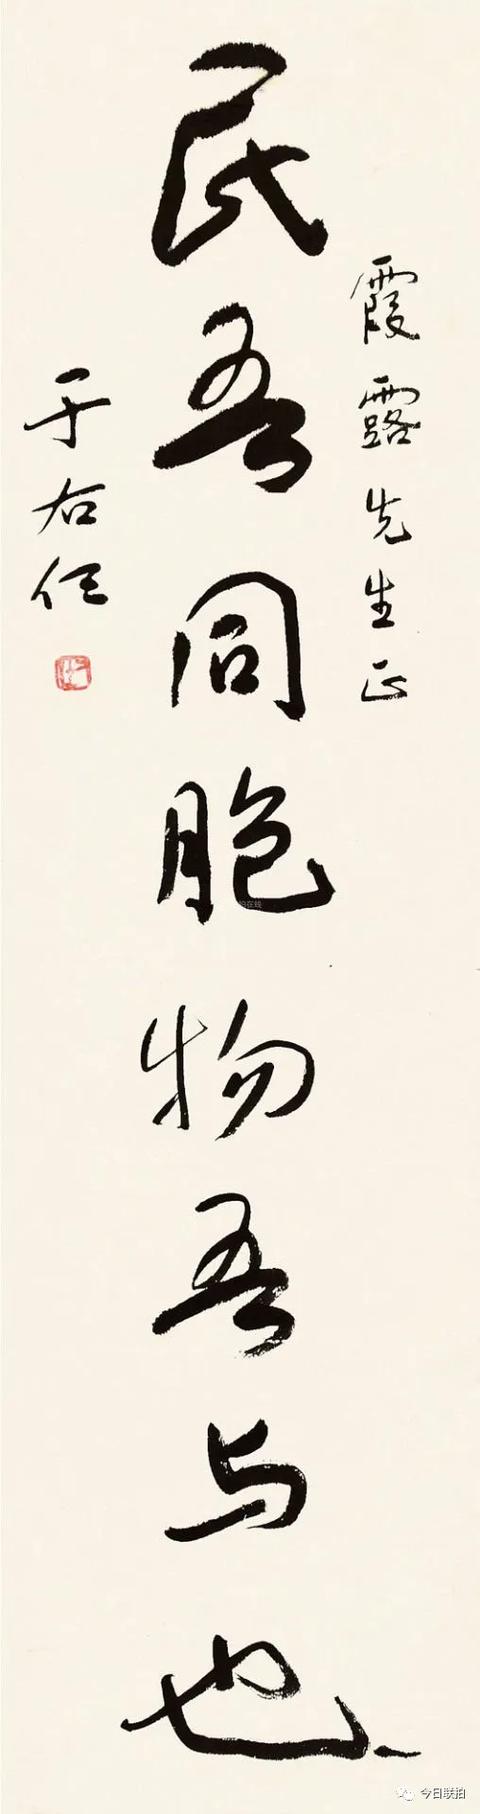 霞露先生正
民吾同胞物吾与也
于右任
今日联拍